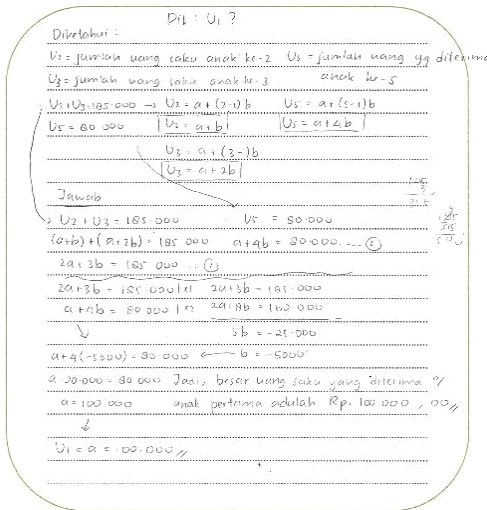 Dit : U₁ ?
Diketahui :
U₂ = jumlah uang saku anak ke-2 U₅ = jumlah uang yg diterima
U₃ = jumlah uang saku anak ke-3 anak ke-5
U₂+U₃=185.000 → U₂ = a + (2-1)b U₅ = a+(5-1)b
U₅ = 80.000 U₂ = a+b U₅ = a+4b
U₃ = a + (3-)b
U₃ = a+2b
Jawab
U₂ + U₃ = 185.000 U₅ = 80.000
(a+b)+(a+2b) = 185.000 a+4b = 80.000 .... ②
2a+3b = 185.000 ... ①
2a+3b = 185.000 |x1 2a+3b = 185.000
a+4b = 80.000 |x2 2a+8b = 160.000 -
5b = -25.000
a+4(-5000) = 80.000 ← b = -5000
a-20.000 = 80.000 Jadi, besar uang saku yang diterima
a = 100.000 anak pertama adalah Rp. 100.000 , 00 //
↓
U₁ = a = 100.000 //